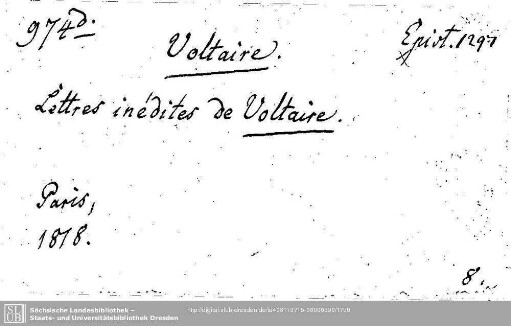 974d.
Voltaire.
Epist. 1297
Lettres inédites de Voltaire.
Paris,
1818.
8.
SLUB
Sächsische Landesbibliothek –
Staats- und Universitätsbibliothek Dresden